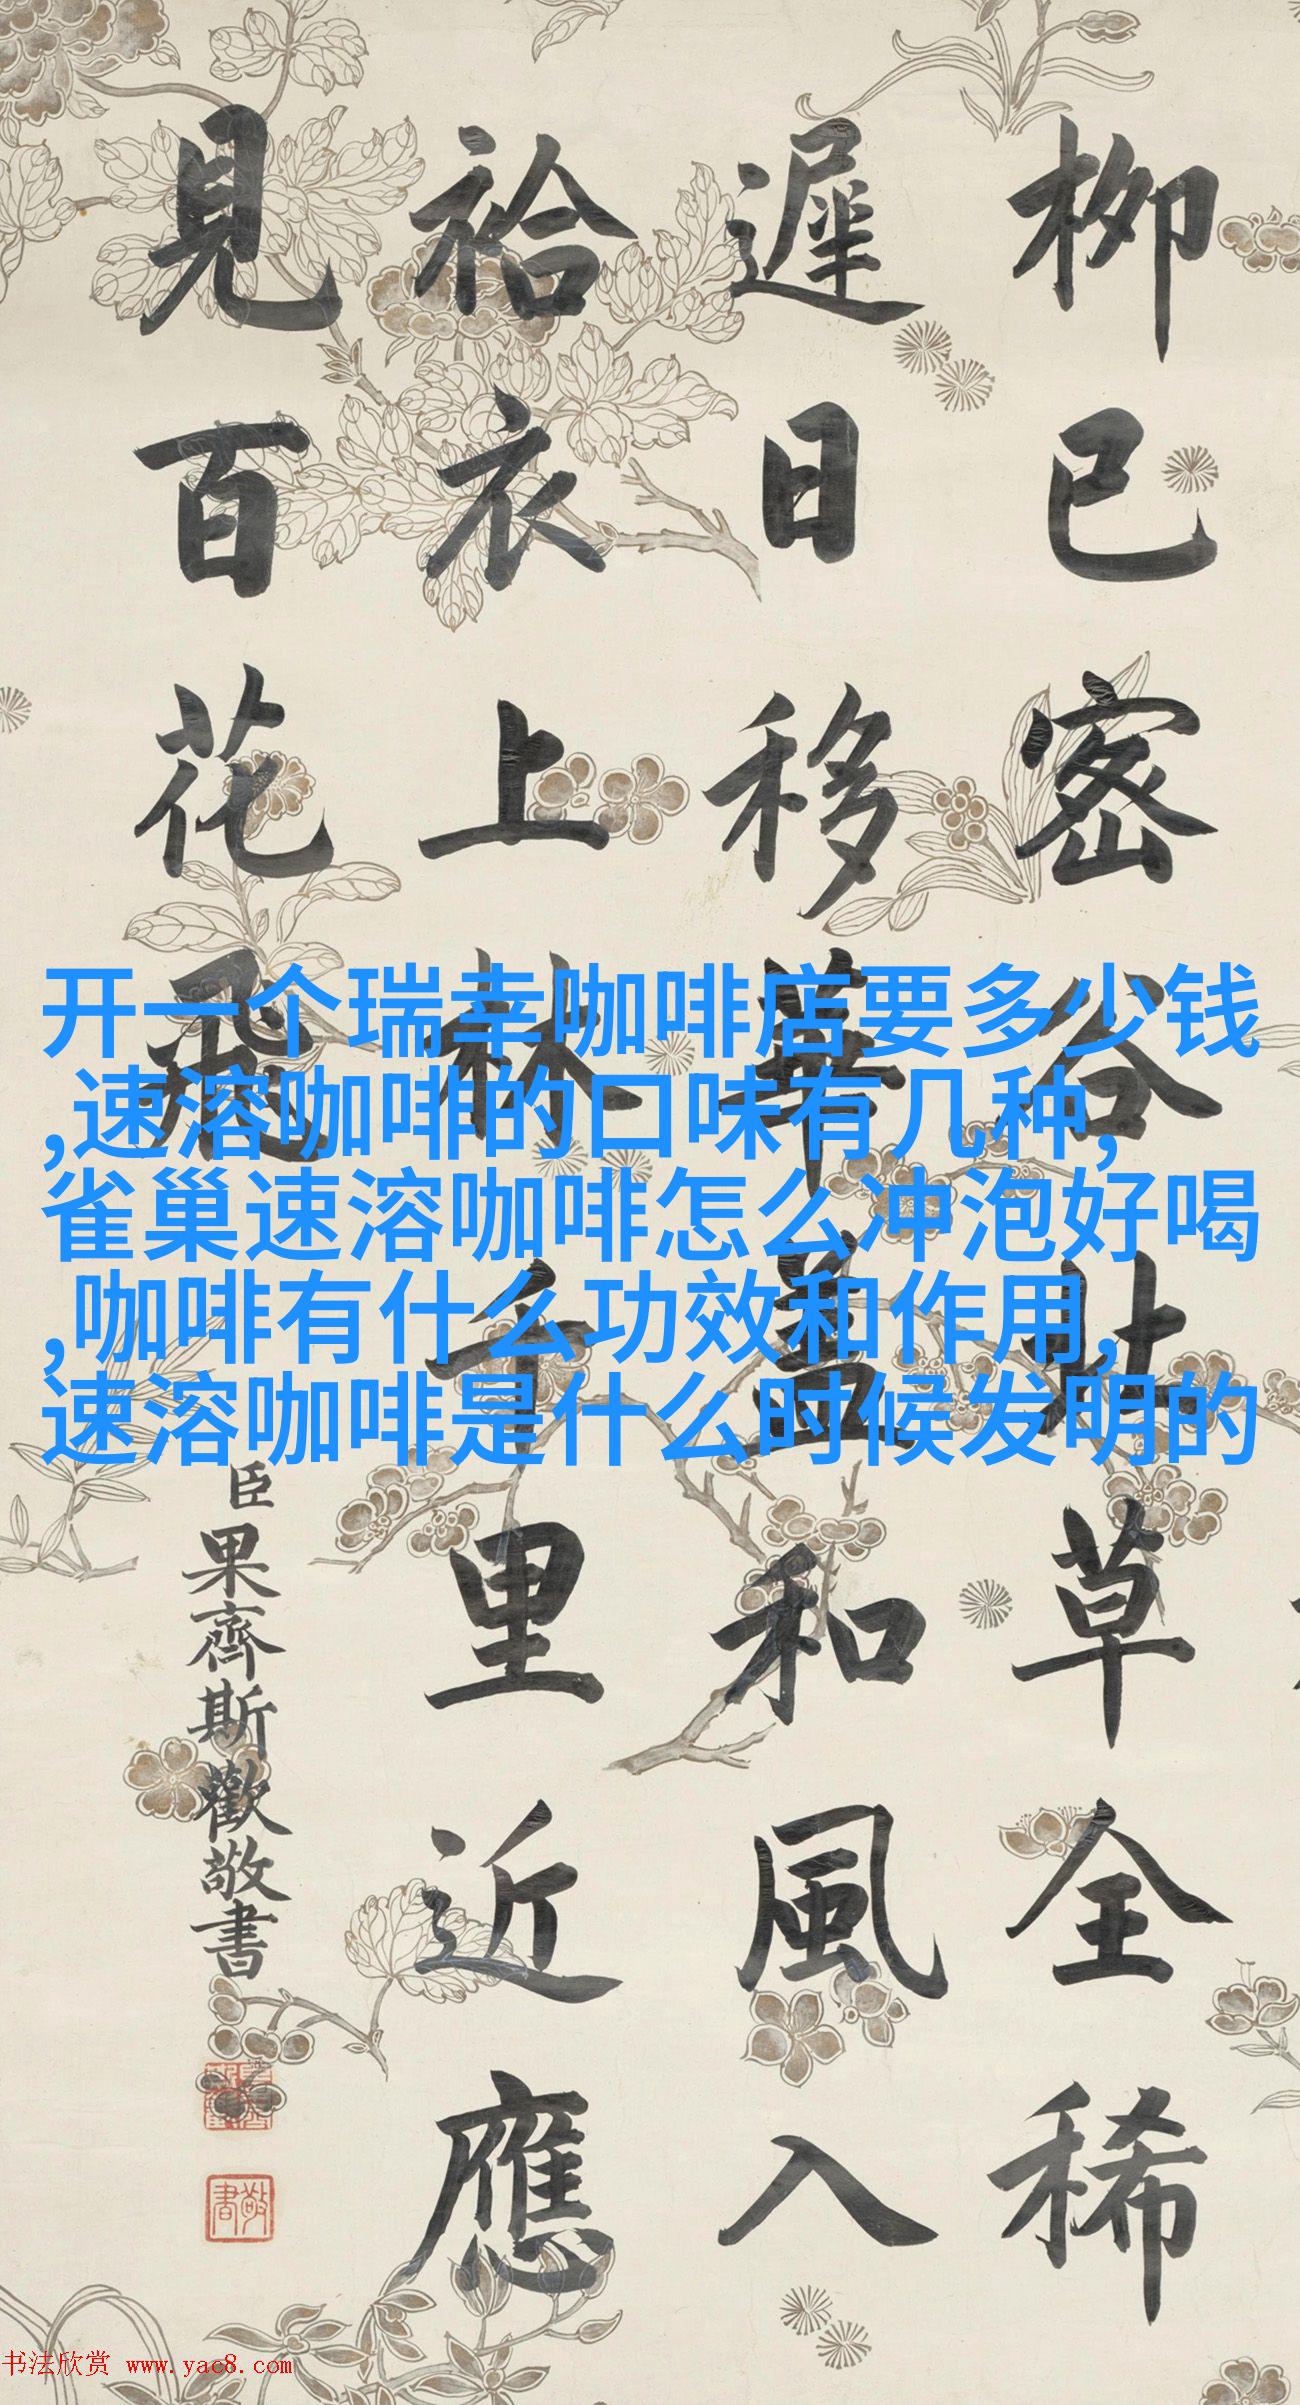 栁已密谷草全稀
遲日移華蓋和風入
袷衣上林千里近應
見百花飛
臣果齊斯歡敬書
敬書
开一个瑞幸咖啡店要多少钱
,速溶咖啡的口味有几种,
雀巢速溶咖啡怎么冲泡好喝
,咖啡有什么功效和作用,
速溶咖啡是什么时候发明的
书法欣赏 www.yac8.com